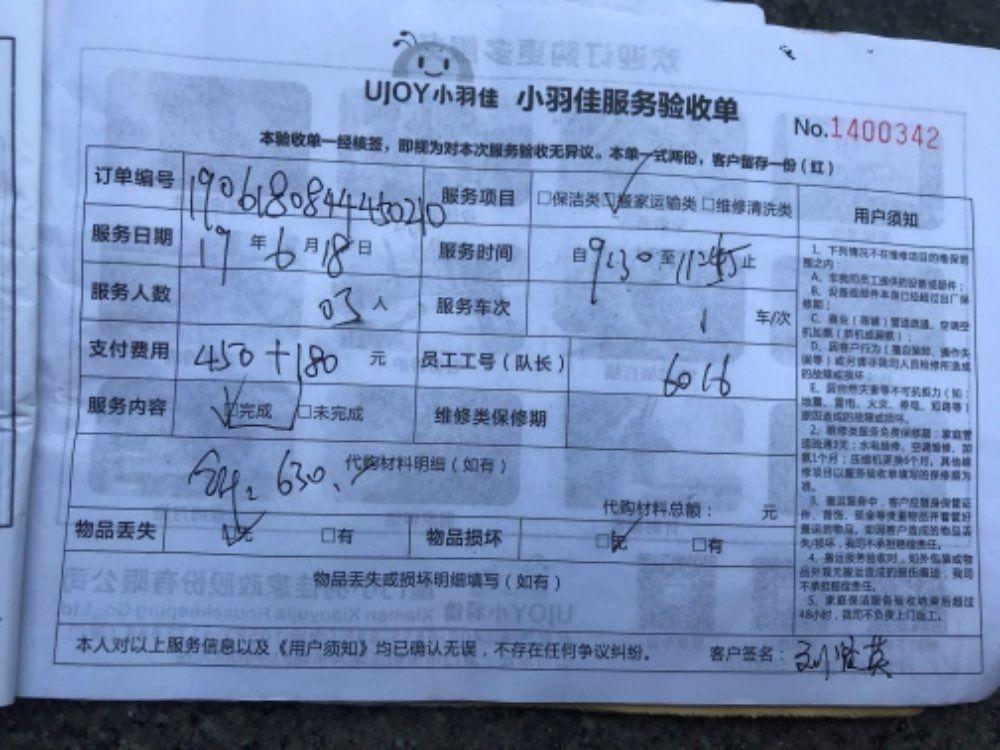 UJOY小羽佳 小羽佳服务验收单
No.1400342
本验收单一经核签，即视为对本次服务验收无异议。本单一式两份，客户留存一份（红）
订单编号 190618084445020 服务项目 □保洁类 ☑搬家运输类 □维修清洗类
服务日期 19年6月18日 服务时间 自9:30至11:45止
服务人数 03人 服务车次 1车/次
支付费用 450+180元 员工工号（队长） 6016
服务内容 ☑完成 □未完成 维修类保修期
代购材料明细（如有）
630
代购材料总额： 元
物品丢失 ☑无 □有 物品损坏 ☑无 □有
物品丢失或损坏明细填写（如有）
本人对以上服务信息以及《用户须知》均已确认无误，不存在任何争议纠纷。 客户签名：
用户须知
1、下列情况不在维修项目的维保范
围之内：
A、非我司员工提供的设备或部件；
B、设备或部件本身已经超过出厂保
修期；
C、商业（商铺）管道疏通、空调空
机加氨（新机或漏氨）；
D、因客户行为（擅自装卸、操作失
误等）或另请非我司人员检修所造成
的故障或损坏；
E、因自然灾害等不可抗拒力（如：
地震、雷电、火灾、停电、短路等）
原因造成的故障或损坏。
2、维修类服务免费保修期：家庭管
道疏通3天；水电维修、空调维修、加
氨1个月；压缩机更换6个月。其他维
修项目以服务验收单填写的保修期为
准。
3、搬运服务中，客户应随身保管证
件、首饰、现金等贵重物品并看管好
搬运的物品，如因客户造成的物品丢
失/损坏，我司不承担赔偿责任。
4、搬运服务验收时，如外包装或物
品外观无搬运造成的损伤痕迹，我司
不承担赔偿责任。
5、家庭保洁服务验收结束后超过
48小时，我司不负责上门返工。